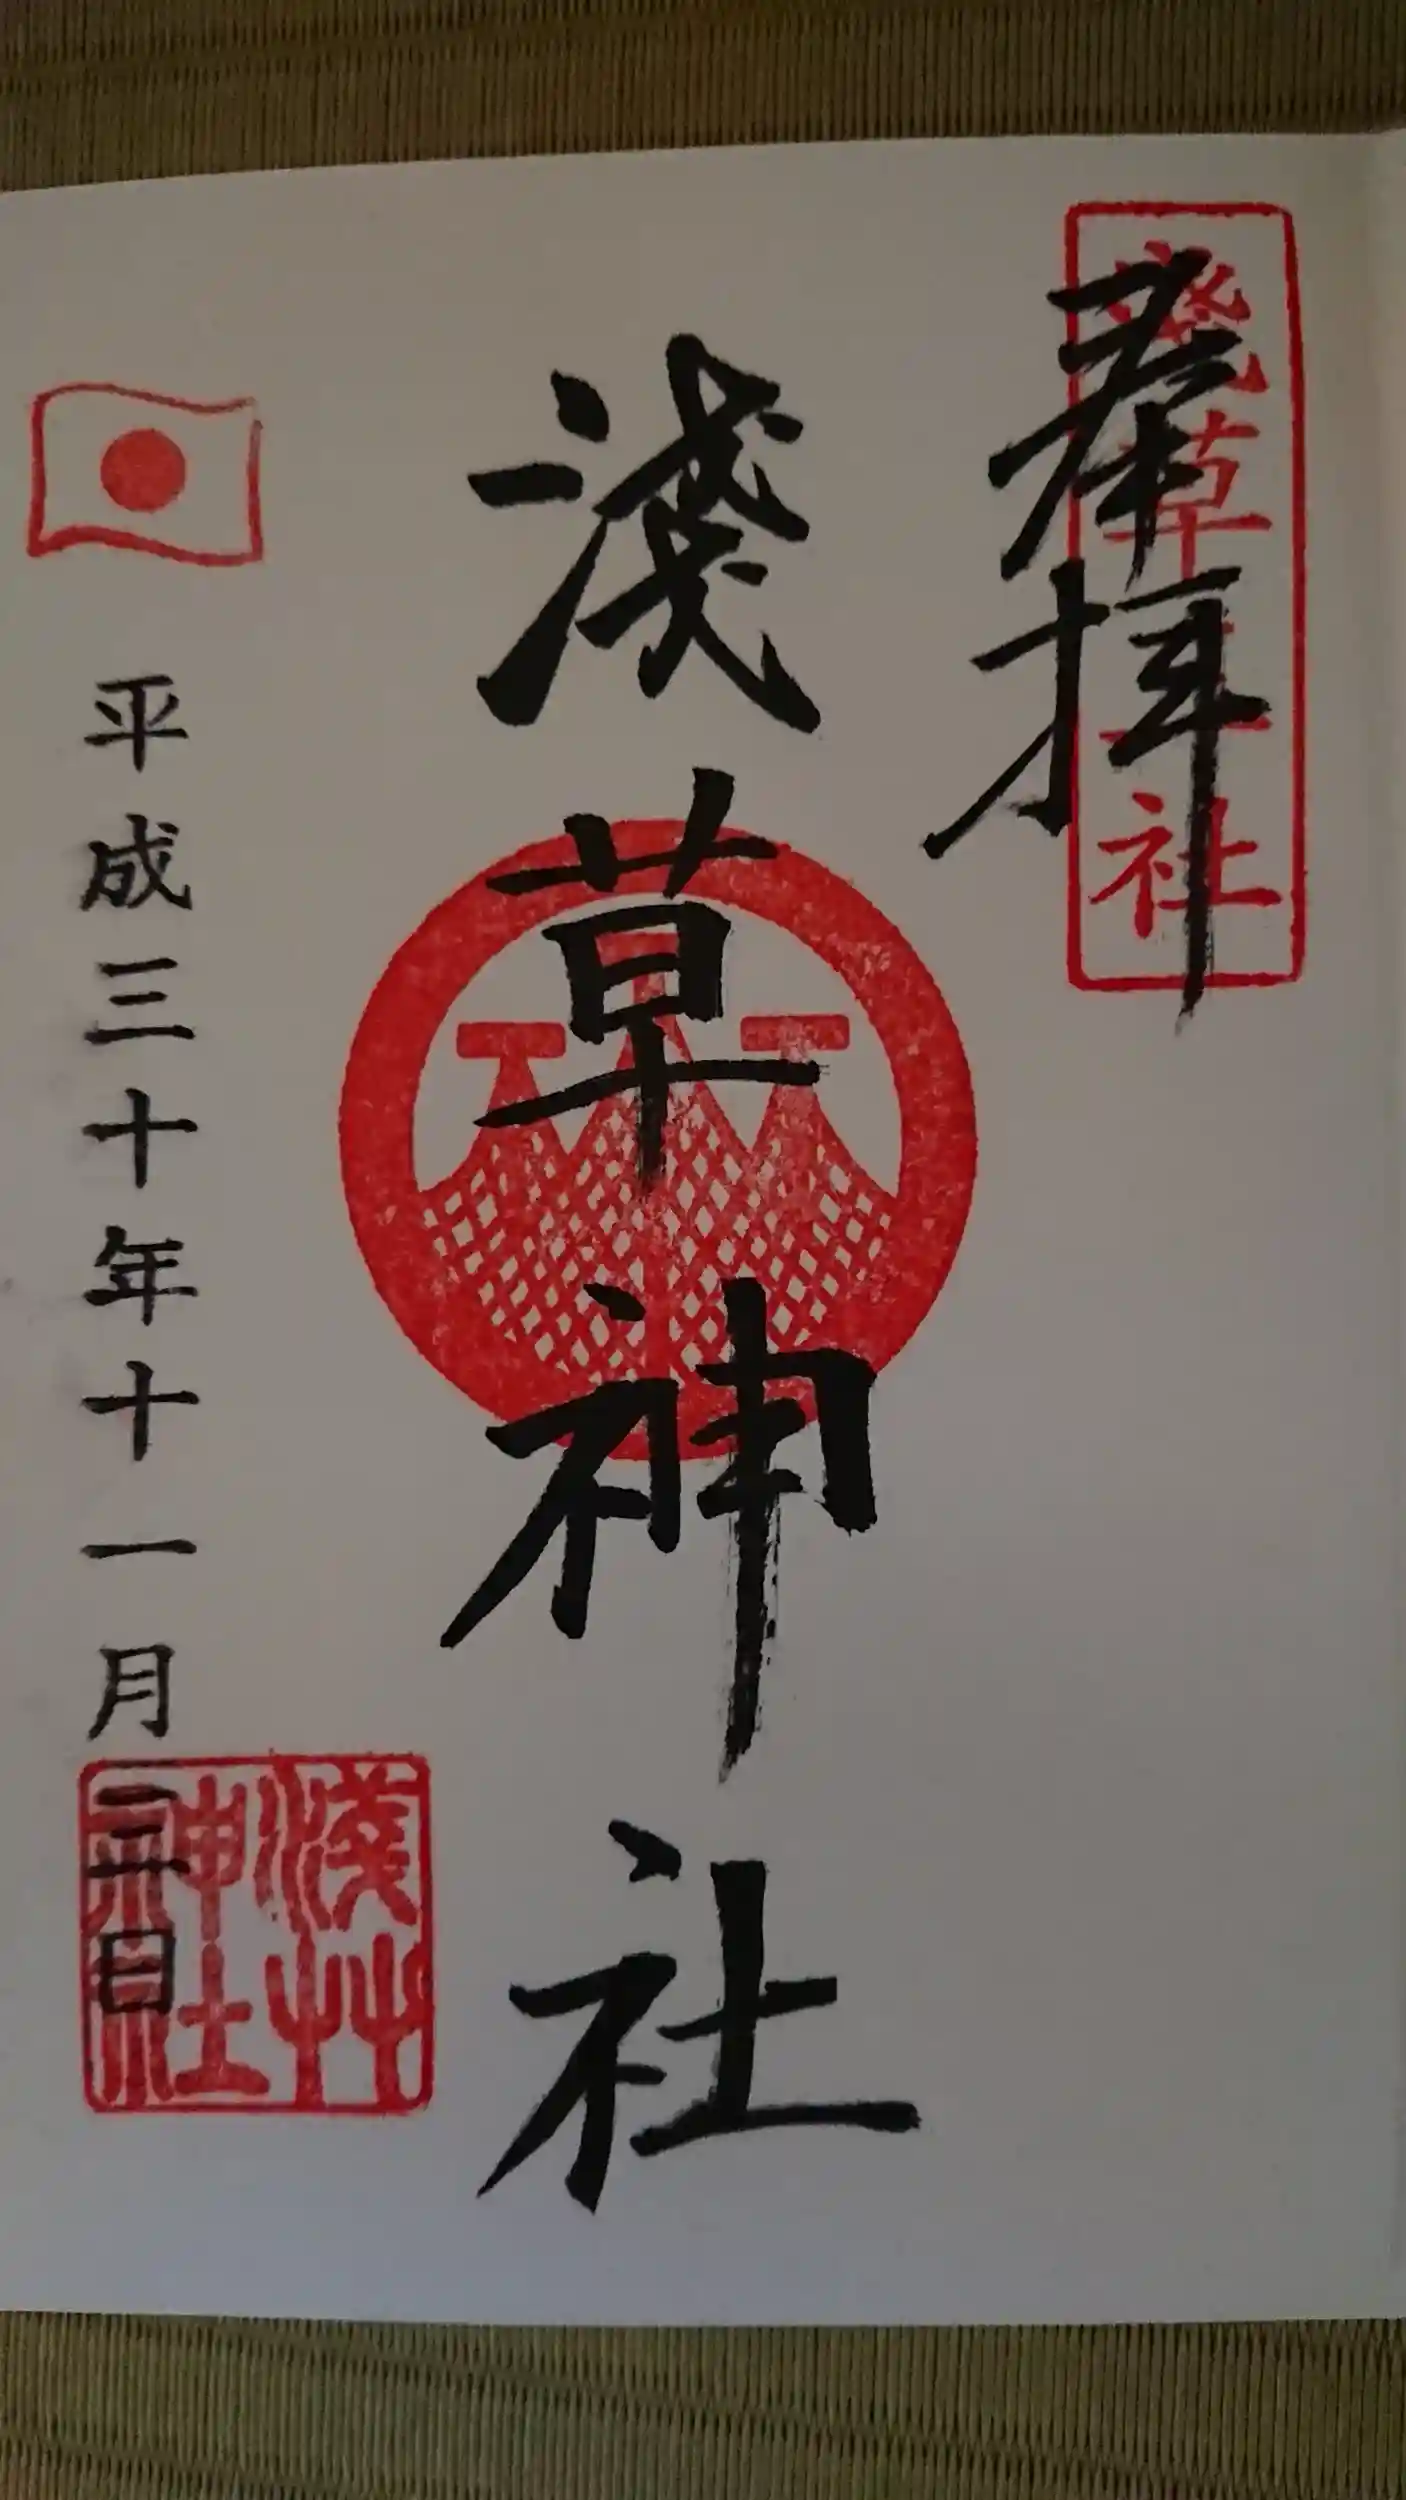 奉拝
淺草三社
淺草神社
平成三十年十一月三十日
淺草神社